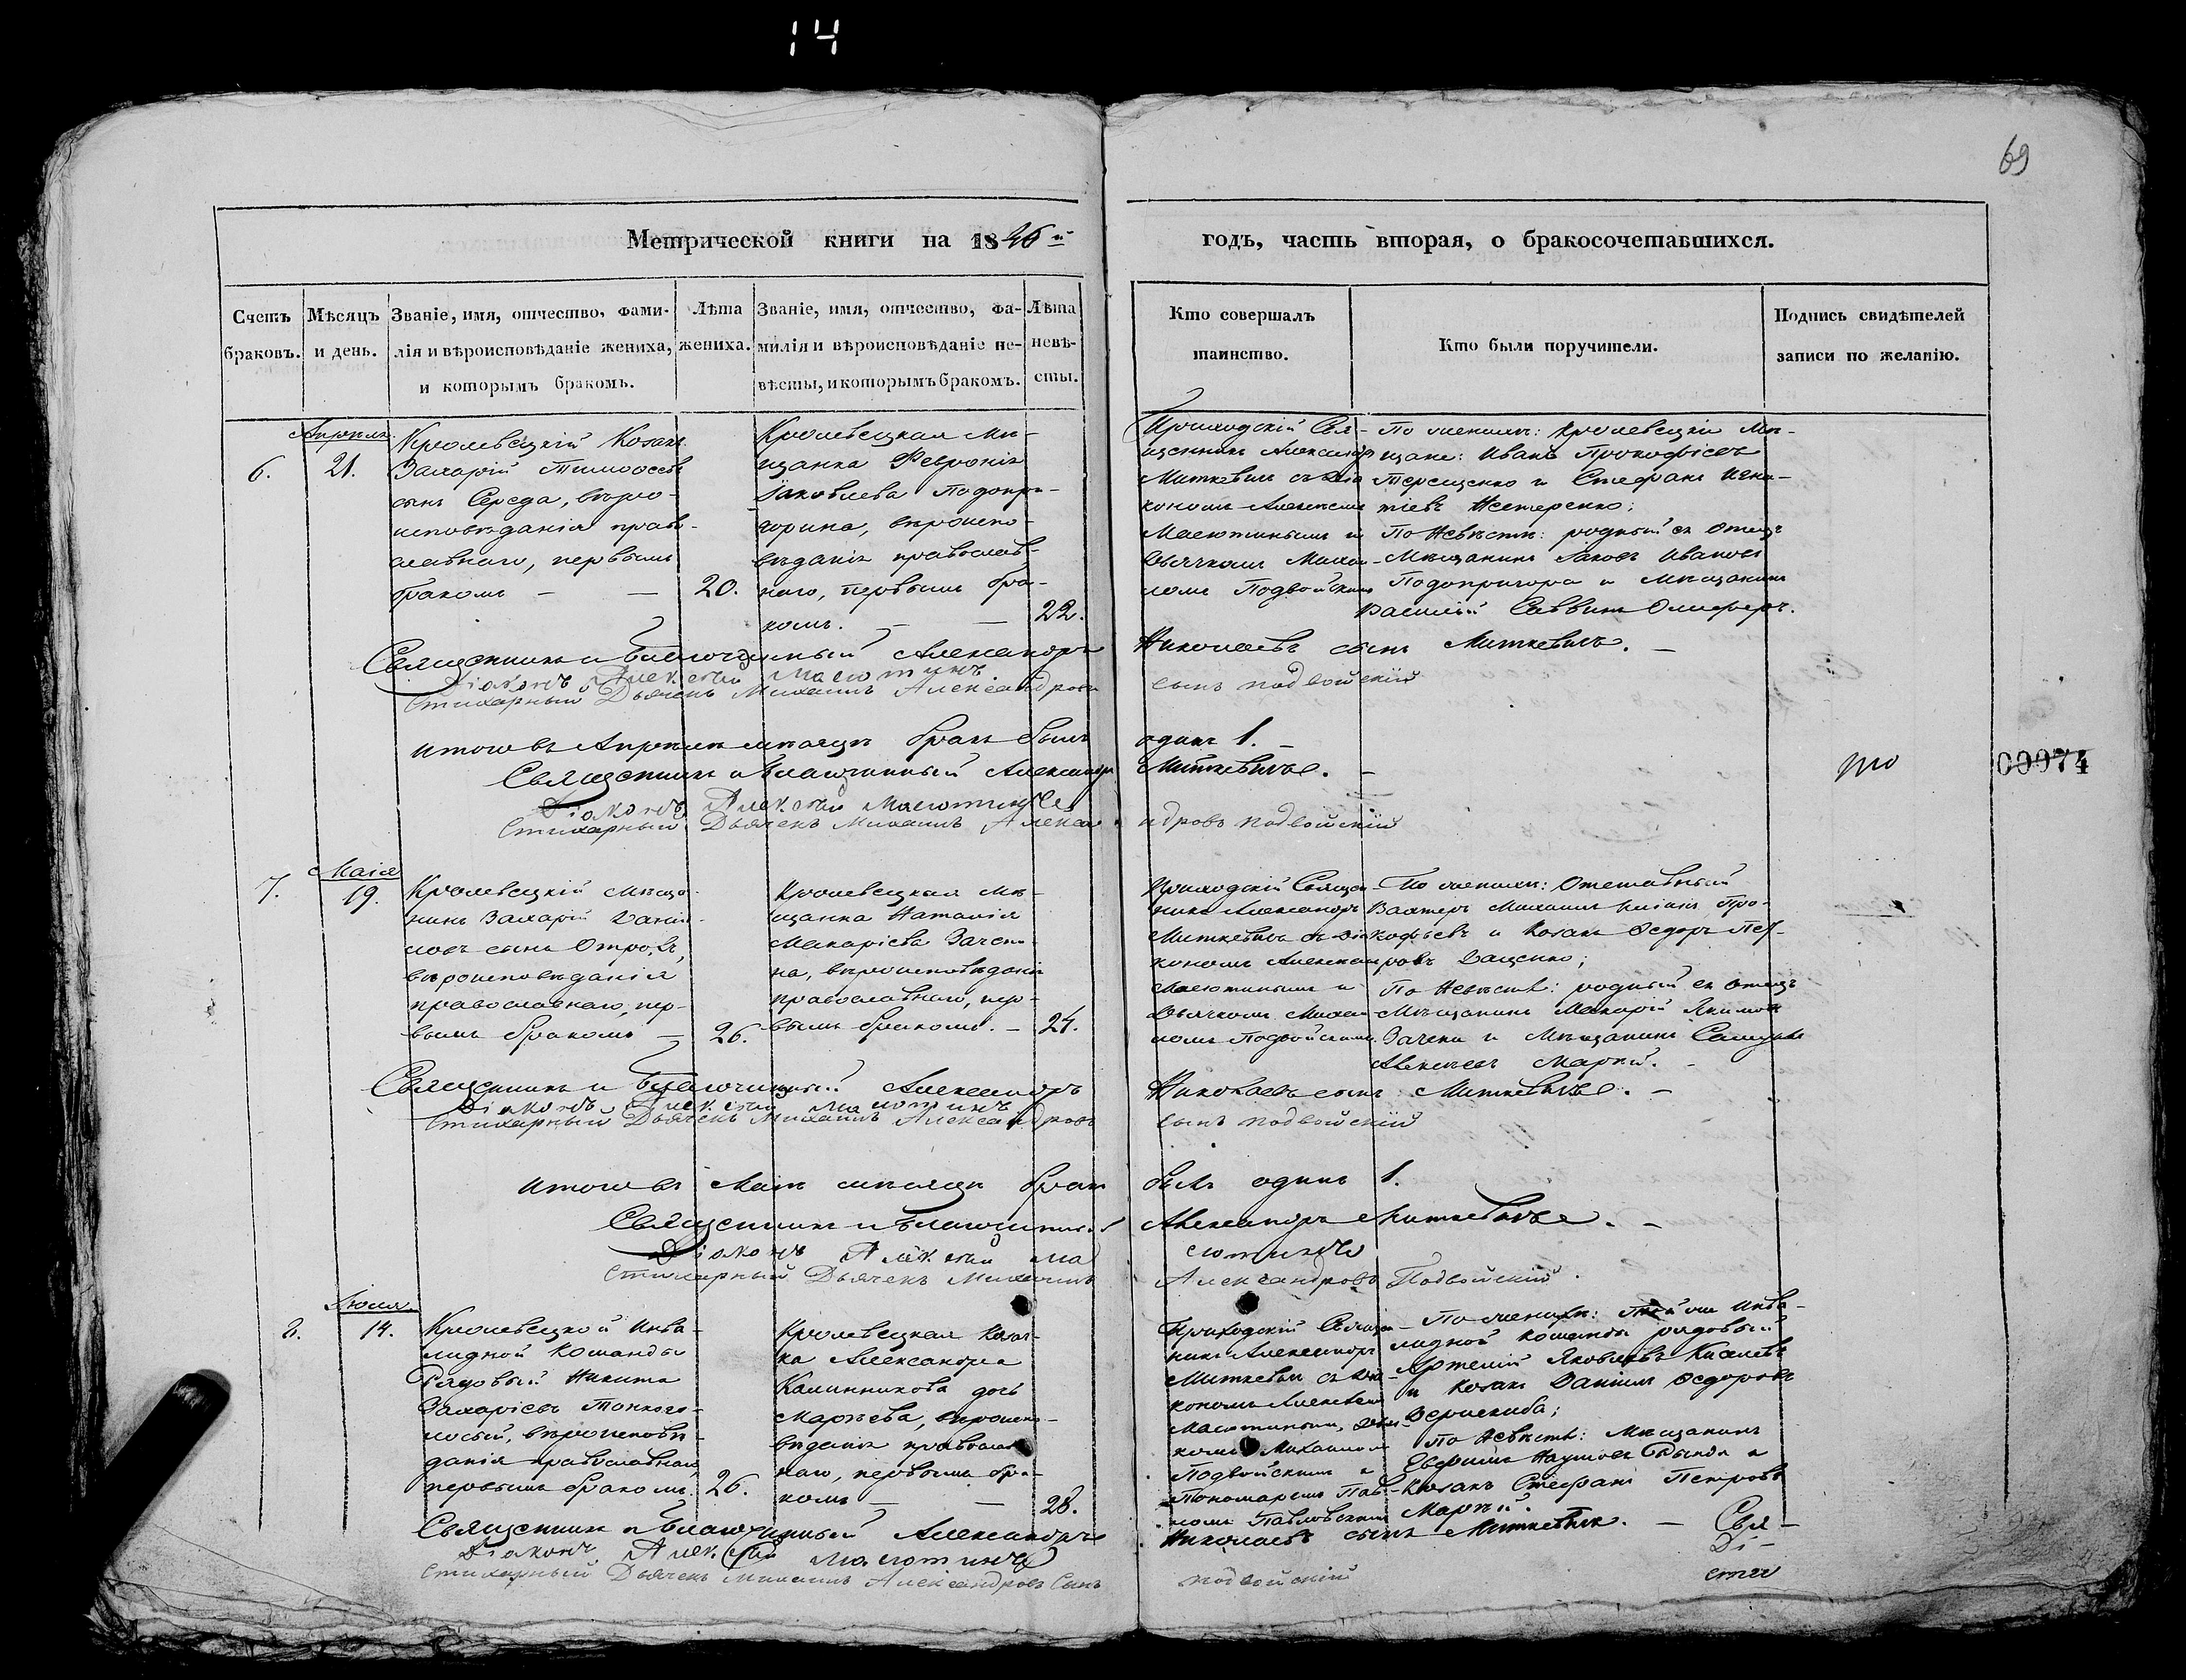 14
69
Метрической книги на 1846й
годъ, часть вторая, о бракосочетавшихся.
Счетъ браковъ.
Мѣсяцъ и день.
Званіе, имя, отчество, фами-
лія и вѣроисповѣданіе жениха,
и которымъ бракомъ.
Лѣта
жениха.
Званіе, имя, отчество, фа-
милія и вѣроисповѣданіе не-
вѣсты, и которымъ бракомъ.
Лѣта
невѣ-
сты.
Кто совершалъ
таинство.
Кто были поручители.
Подпись свидѣтелей
записи по желанію.
6.
Апрѣля
21.
Кролевецкій Козакъ
Захарій Тимоѳеевъ
сынъ Середа, вѣро-
исповѣданія право-
славнаго, первымъ
бракомъ — —
20.
Кролевецкая Мѣ-
щанка Февронія
Іаковлева Подопри-
горина, вѣроиспо-
вѣданія православ-
наго, первымъ бра-
комъ. — —
22.
Приходскій Свя-
щенникъ Александръ
Миткевичъ съ Діа-
кономъ Алексѣемъ
Малютинымъ и
Дьячкомъ Михаи-
ломъ Подвойскимъ
По женихѣ: Кролевецкіе Мѣ-
щане: Иванъ Прокофіевъ
Терещенко и Стефанъ Игна-
тіевъ Нестеренко;
По Невѣстѣ: родный ея Отецъ
Мѣщанинъ Іаковъ Ивановъ
Подопригора и Мѣщанинъ
Василій Саввинъ
Священникъ и Благочинный Александръ Николаевъ сынъ Миткевичъ. —
Діаконъ Алексѣй Малютинъ
Стихарный Дьячекъ Михаилъ Александровъ сынъ Подвойскій
Итого въ Апрѣлѣ мѣсяцѣ бракъ былъ одинъ 1. —
Священникъ и Благочинный Александръ Миткевичъ. —
Діаконъ Алексѣй Малютинъ
Стихарный Дьячекъ Михаилъ Александровъ Подвойскій
00974
7.
Маія
19.
Кролевецкій Мѣща-
нинъ Захарій Дани-
ловъ сынъ
вѣроисповѣданія
православнаго, пер-
вымъ бракомъ —
26.
Кролевецкая Мѣ-
щанка Наталія
Макаріева Зачепи-
на, вѣроисповѣданія
православнаго, пер-
вымъ бракомъ. —
24.
Приходскій Священ-
никъ Александръ
Миткевичъ съ Діа-
кономъ Алексѣемъ
Малютинымъ и
Дьячкомъ Михаи-
ломъ Подвойскимъ.
По женихѣ: Отставный
Вахтеръ Михаилъ Про-
кофьевъ и Козакъ Ѳедоръ Пет-
ровъ Даценко;
По Невѣстѣ: родный ея Отецъ
Мѣщанинъ Макарій Якимовъ
Зачепа и Мѣщанинъ Самуилъ
Алексѣевъ Маркій. —
Священникъ и Благочинный Александръ Николаевъ сынъ Миткевичъ. —
Діаконъ Алексѣй Малютинъ
Стихарный Дьячекъ Михаилъ Александровъ сынъ Подвойскій
Итого въ Маіѣ мѣсяцѣ бракъ былъ одинъ 1.
Священникъ и Благочинный Александръ Миткевичъ. —
Діаконъ Алексѣй Малютинъ
Стихарный Дьячекъ Михаилъ Александровъ Подвойскій.
8.
14.
Кролевецкой Инва-
лидной Команды
Рядовый Никита
Захаріевъ Тонкого-
лосый, вѣроисповѣ-
данія православнаго,
первымъ бракомъ.
26.
Кролевецкая Козач-
ка Александра
Калинникова дочь
Марѣева, вѣроиспо-
вѣданія православ-
наго, первымъ бра-
комъ — —
28.
Приходскій Священ-
никъ Александръ
Миткевичъ съ Діа-
кономъ Алексѣемъ
Малютинымъ, Дьяч-
комъ Михаиломъ
Подвойскимъ и
Пономаремъ Пав-
ломъ Павловскимъ
По женихѣ: той же Инва-
лидной Команды рядовый
Артемій Яковлевъ Киселевъ
и Козакъ Даніилъ Ѳедоровъ
По Невѣстѣ: Мѣщанинъ
Наумовъ и
Козакъ Стефанъ Петровъ
Марѣй.
Священникъ и Благочинный Александръ Николаевъ сынъ Миткевичъ. — Свя-
Діаконъ Алексѣй Малютинъ Ді-
Стихарный Дьячекъ Михаилъ Александровъ Сынъ Подвойскій сти